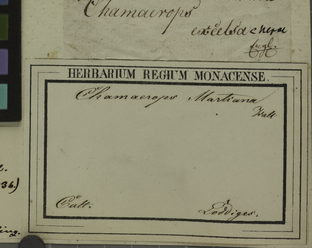 Chamaerops
excelsa
HERBARIUM REGIUM MONACENSE.
Chamaerops Martiana
Cult.
Loddiges.
36)